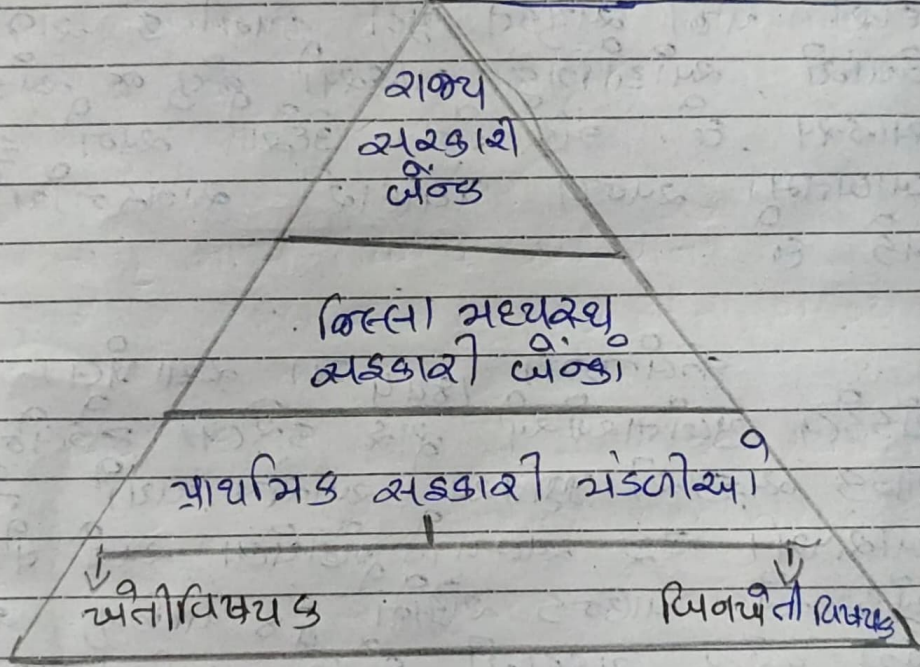 રાજ્ય
સરકારી
બેંન્ક
જિલ્લા મધ્યસ્થ
સહકારી બેંન્કો
પ્રાથમિક સહકારી મંડળીઓ
ખેતીવિષયક બિનખેતી વિષયક